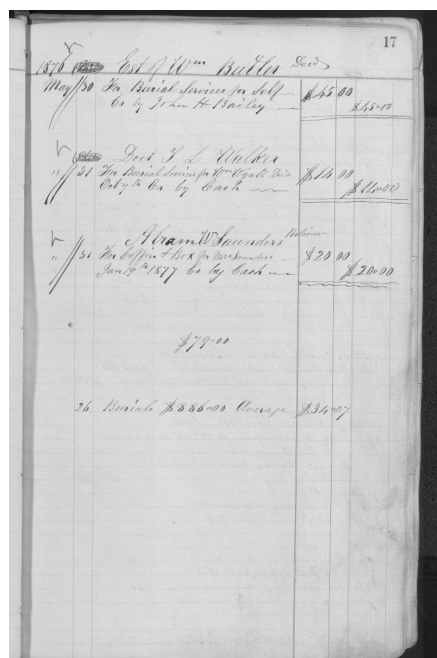 17
1876 Est of Wm Butler Decd
May 30 For Burial Services for Self $45 00
Cr by John H Bailey $45=00
Doct T L Walker
" 31 For Burial Services for Wm Wyatt $14 00
Oct 7th Cr by Cash $14=00
Abram W Saunders
" 31 For Coffin & Box for Mrs Saunders $20 00
Jan 19th 1877 Cr by Cash $20=00
$79=00
26 Burials $886=00 Average $34=07